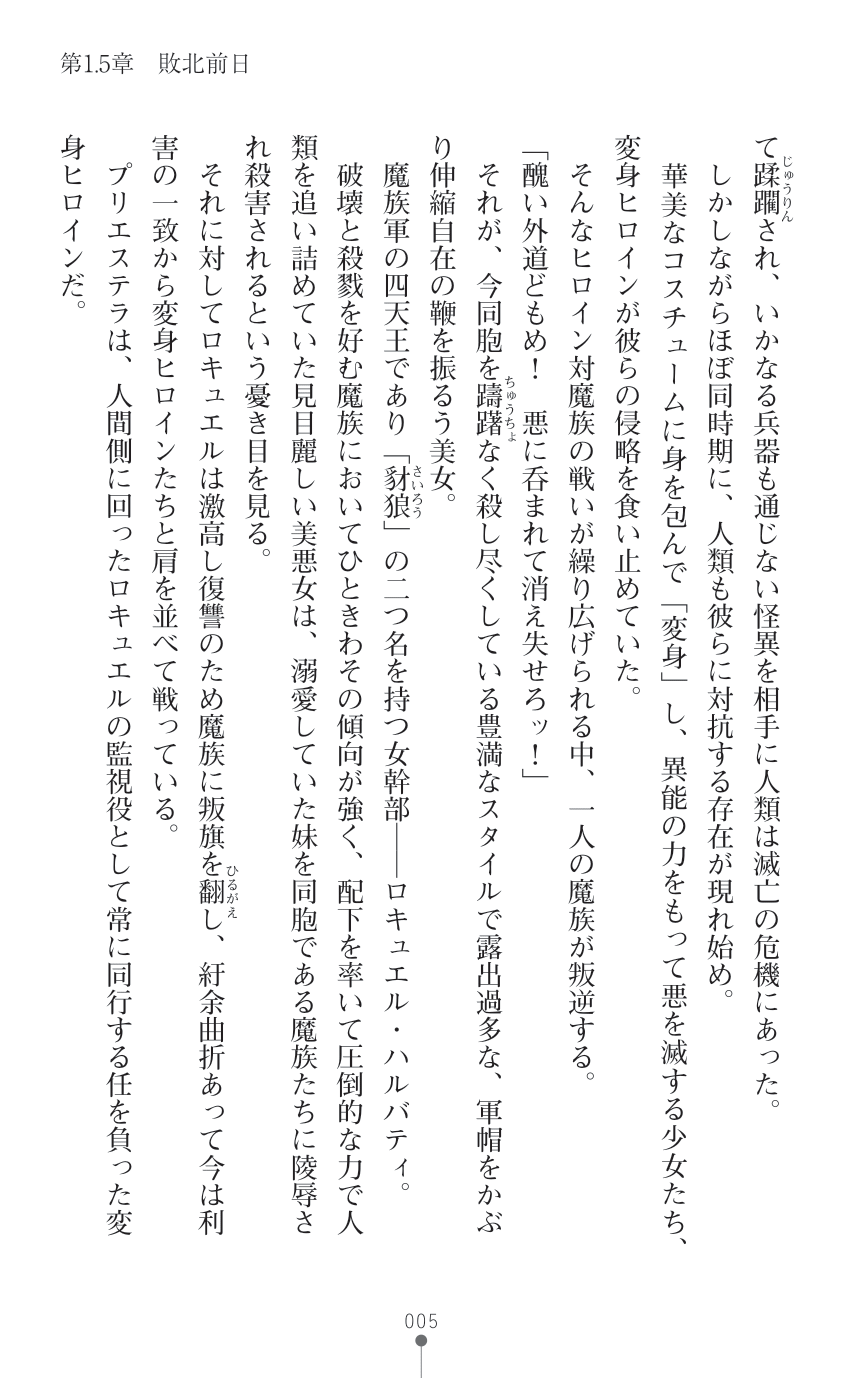 第1.5章　敗北前日
て蹂躙され、いかなる兵器も通じない怪異を相手に人類は滅亡の危機にあった。
じゅうりん
　しかしながらほぼ同時期に、人類も彼らに対抗する存在が現れ始め。
　華美なコスチュームに身を包んで「変身」し、異能の力をもって悪を滅する少女たち、
変身ヒロインが彼らの侵略を食い止めていた。
　そんなヒロイン対魔族の戦いが繰り広げられる中、一人の魔族が叛逆する。
「醜い外道どもめ！　悪に呑まれて消え失せろッ！」
　それが、今同胞を躊躇なく殺し尽くしている豊満なスタイルで露出過多な、軍帽をかぶ
ちゅうちょ
り伸縮自在の鞭を振るう美女。
　魔族軍の四天王であり「豺狼」の二つ名を持つ女幹部――ロキュエル・ハルバティ。
さいろう
　破壊と殺戮を好む魔族においてひときわその傾向が強く、配下を率いて圧倒的な力で人
類を追い詰めていた見目麗しい美悪女は、溺愛していた妹を同胞である魔族たちに陵辱さ
れ殺害されるという憂き目を見る。
　それに対してロキュエルは激高し復讐のため魔族に叛旗を翻し、紆余曲折あって今は利
ひるがえ
害の一致から変身ヒロインたちと肩を並べて戦っている。
　プリエステラは、人間側に回ったロキュエルの監視役として常に同行する任を負った変
身ヒロインだ。
005